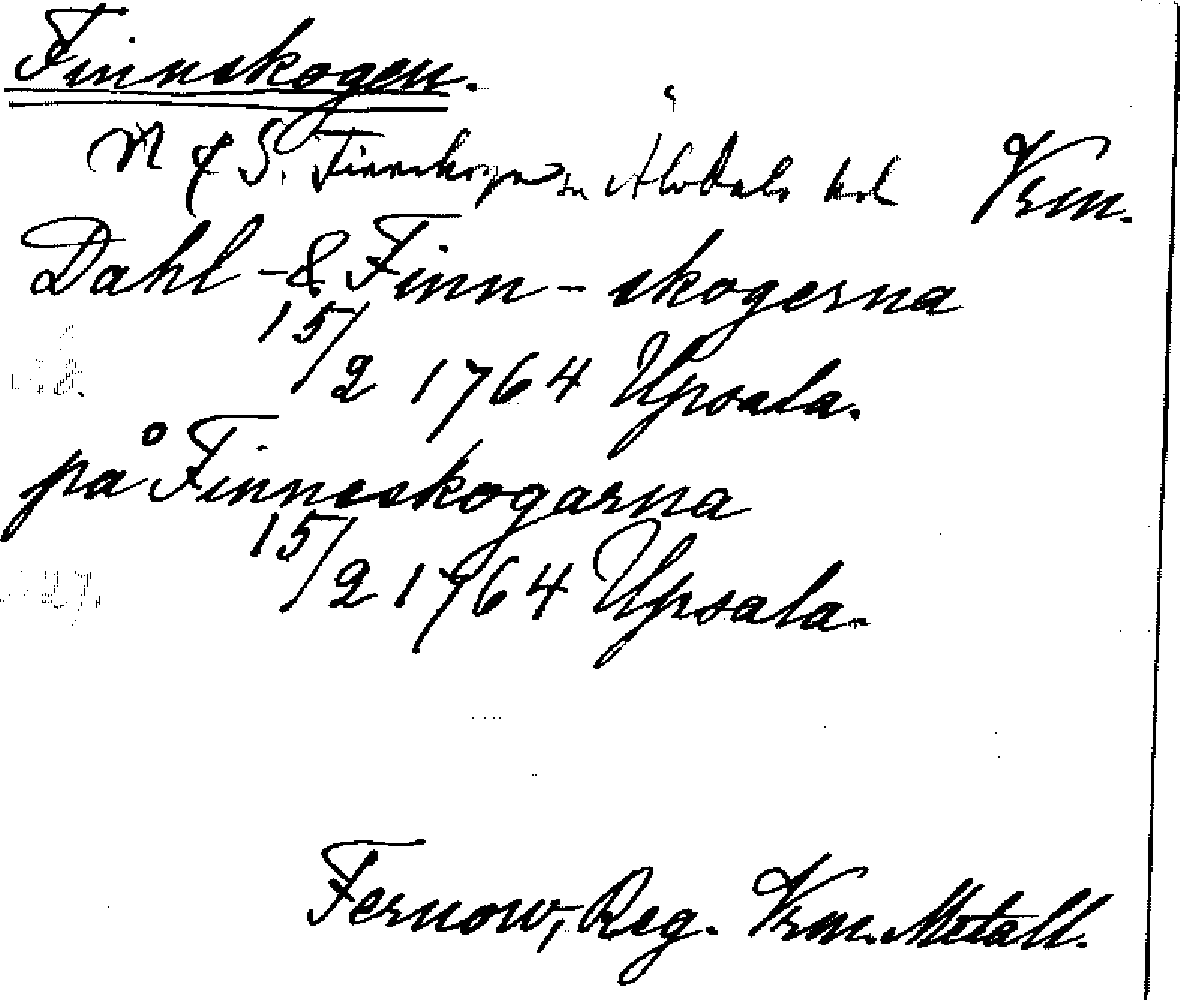 Finnskogen.
N & S. Finnskogen Älvdals hd Vrm.
Dahl-& Finn-skogerna
15/2 1764 Upsala.
på Finneskogarna
15/2 1764 Upsala.
Fernow, Reg. Vrm. Metall.